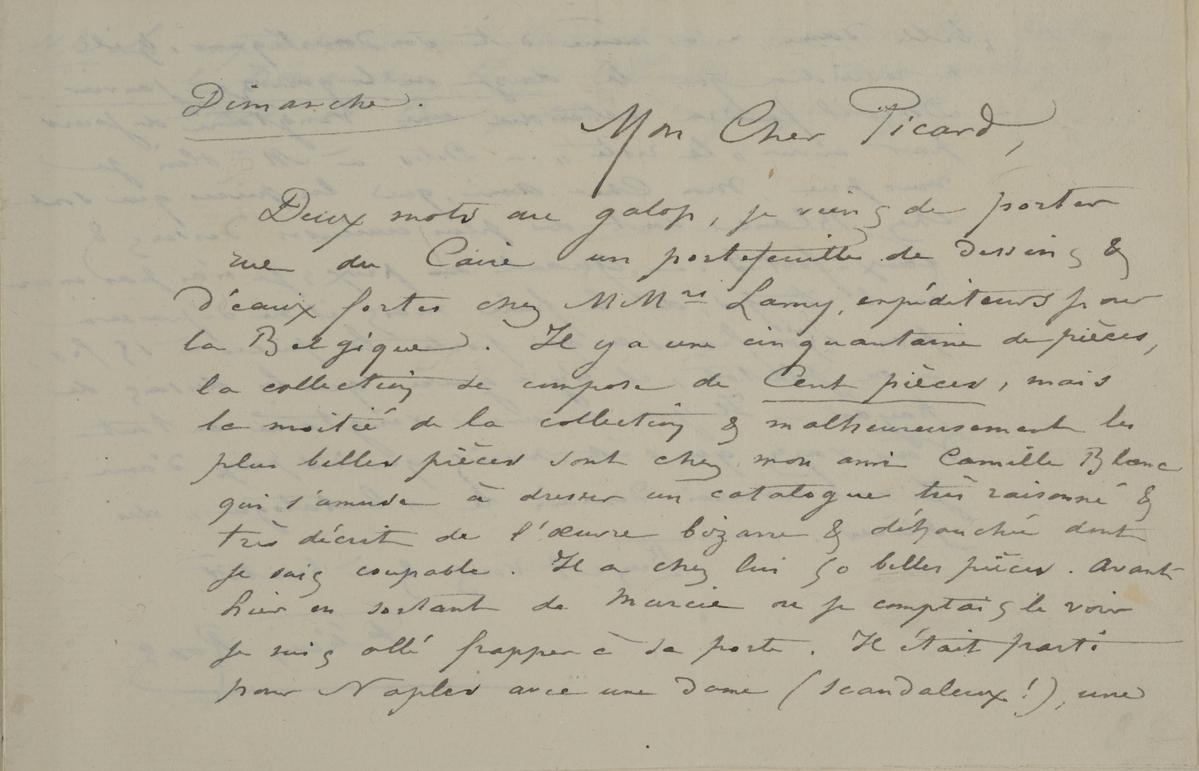 Dimanche.
Mon Cher Picard,
Deux mots au galop, je viens de porter
rue du Caire un portefeuille de dessins &
d'eaux fortes chez MMrs Lamy, expéditeurs pour
la Belgique. Il y a une cinquantaine de pièces,
la collection se compose de Cent pièces, mais
la moitié de la collection & malheureusement les
plus belles pièces sont chez mon ami Camille Blanc
qui s'amuse à dresser un catalogue très raisonné &
très décrit de l'œuvre bizarre & débauchée dont
je suis coupable. Il a chez lui 50 belles pièces. Avant
hier en sortant de où je comptais le voir
je suis allé frapper à sa porte. Il était parti
pour Naples avec une dame (scandaleux!), une